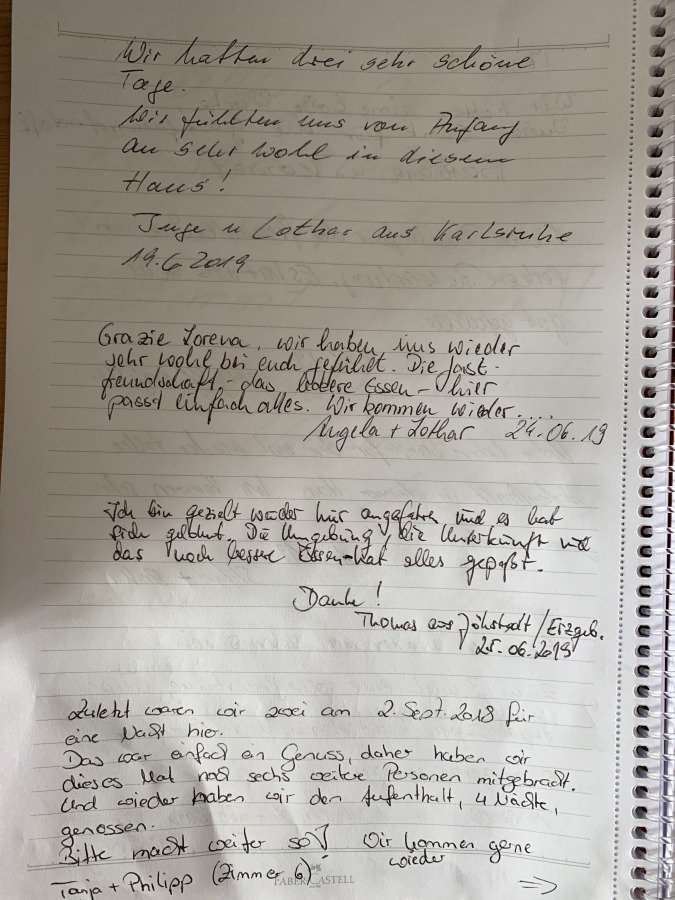 Wir hatten drei sehr schöne
Tage.
Wir fühlten uns von Anfang
an sehr wohl in diesem
Haus!
Inge u Lothar aus Karlsruhe
19.6 2019
Grazie Lorena, wir haben uns wieder
sehr wohl bei euch gefühlt. Die Gast-
freundschaft - das leckere Essen - hier
passt einfach alles. Wir kommen wieder....
Angela + Lothar 24.06.19
Ich bin gezielt wieder hier angefahren und es hat
sich gelohnt. Die Umgebung, die Unterkunft und
das noch bessere Essen - hat alles gepaßt.
Danke!
Thomas aus Jöhstadt/Erzgeb.
25.06.2019
Zuletzt waren wir zwei am 2. Sept. 2018 für
eine Nacht hier.
Das war einfach ein Genuss, daher haben wir
dieses Mal noch sechs weitere Personen mitgebracht.
Und wieder haben wir den Aufenthalt, 4 Nächte,
genossen.
Bitte macht weiter so! Wir kommen gerne
wieder
Tanja + Philipp (Zimmer 6)
FABER-CASTELL